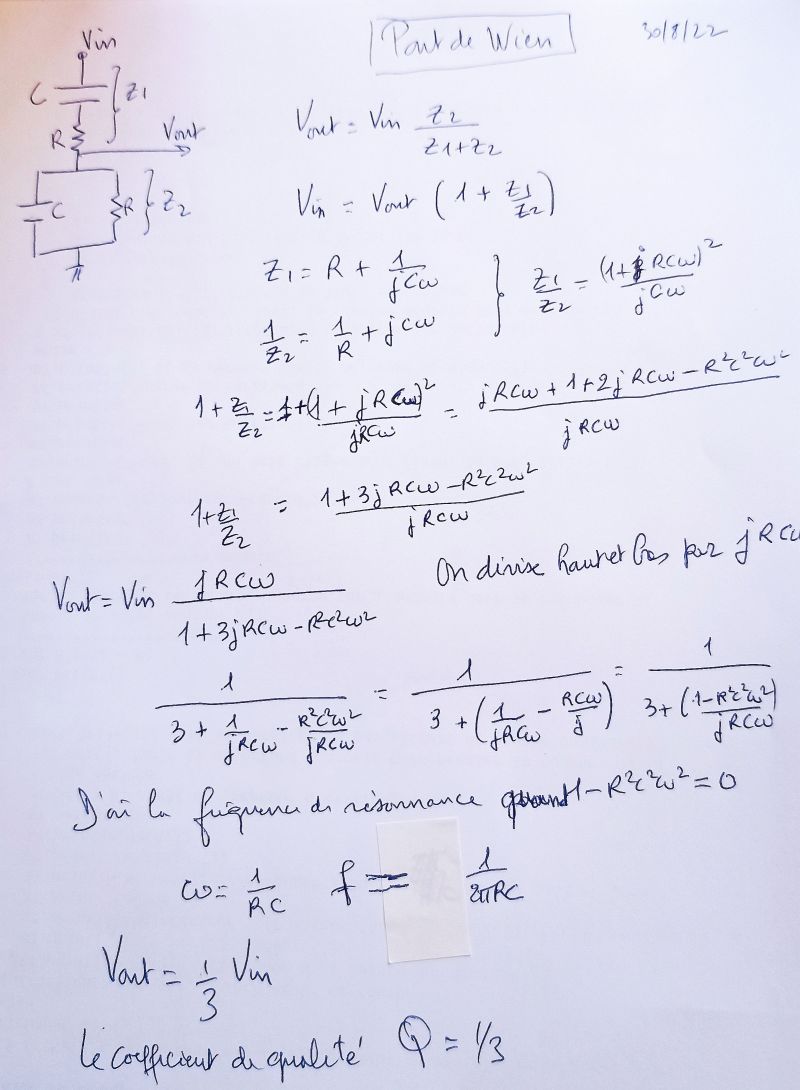 Pont de Wien
30/8/22
Vin
C
Z1
R
Vout
C
R
Z2
Vout = Vin Z2/(Z1+Z2)
Vin = Vout (1 + Z1/Z2)
Z1 = R + 1/(jCω)
1/Z2 = 1/R + jCω
Z1/Z2 = (1+jRCω)²/(jCω)
1 + Z1/Z2 = 1+(1 + jRCω)²/(jRCω) = (jRCω + 1 + 2jRCω − R²C²ω²)/(jRCω)
1+Z1/Z2 = (1 + 3jRCω − R²C²ω²)/(jRCω)
On divise haut et bas par jRCω
Vout = Vin jRCω/(1 + 3jRCω − R²C²ω²)
1/(3 + 1/(jRCω) − R²C²ω²/(jRCω)) = 1/(3 + (1/(jRCω) − RCω/j)) = 1/(3 + (1−R²C²ω²)/(jRCω))
J'ai la fréquence de résonnance quand 1 − R²C²ω² = 0
ω = 1/RC f = 1/(2πRC)
Vout = 1/3 Vin
Le coefficient de qualité Q = 1/3